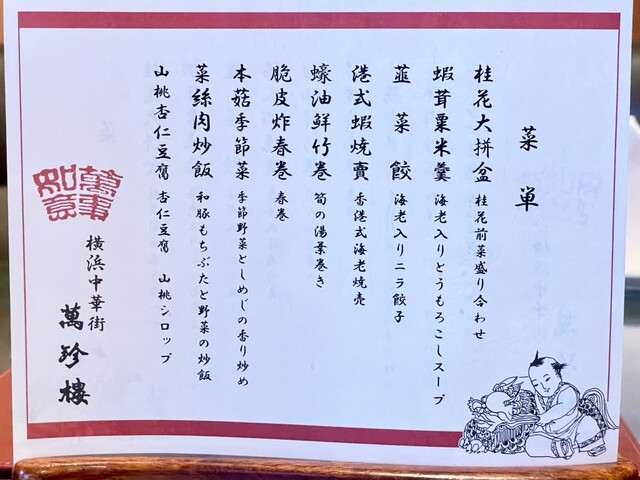 菜単
桂花大拼盆 桂花前菜盛り合わせ
蝦茸粟米羹 海老入りとうもろこしスープ
韮菜餃 海老入りニラ餃子
港式蝦焼賣 香港式海老焼売
蠔油鮮竹巻 筍の湯葉巻き
脆皮炸春巻 春巻
本菇季節菜 季節野菜としめじの香り炒め
菜絲肉炒飯 和豚もちぶたと野菜の炒飯
山桃杏仁豆腐 杏仁豆腐 山桃シロップ
萬事如意
横浜中華街
萬珍樓